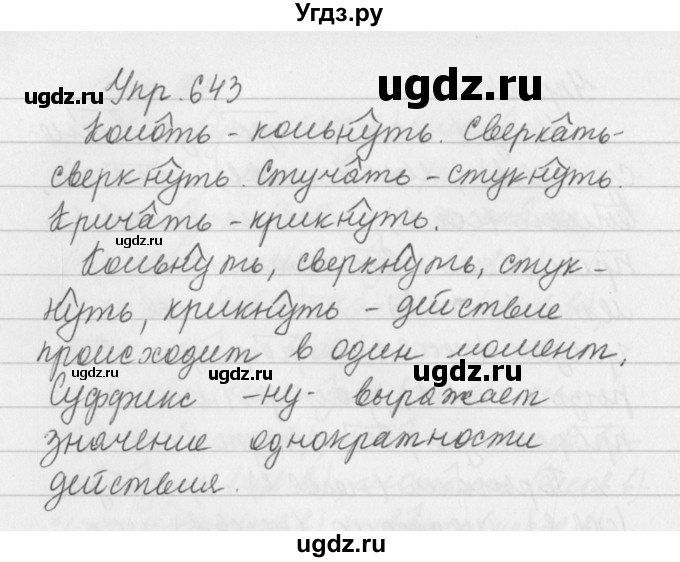 Угдз.ру
Упр. 643
Колоть - кольнуть. Сверкать-
сверкнуть. Стучать - стукнуть.
Кричать - крикнуть.
Кольнуть, сверкнуть, стук-
нуть, крикнуть - действие
происходит в один момент.
Суффикс -ну- выражает
значение однократности
действия.
ugdz.ru
ugdz.ru
ugdz.ru
ugdz.ru
ugdz.ru
ugdz.ru
ugdz.ru